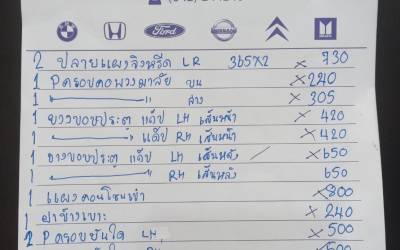 Ford
2 ปลายแผงจิ้งหรีด LR 365x2 x 730
1 Pครอบคอพวงมาลัย บน x 240
1 ———"——— ล่าง x 305
1 ยางขอบประตู แค๊ป LH เส้นหน้า x 420
1 ———"——— แค๊ป RH เส้นหน้า x 420
1 ยางขอบประตู แค๊ป LH เส้นหลัง / x 650
1 ———"——— RH เส้นหลัง 650
1 แผงคอนโซนเข่า x 800
1 ฝาข้างเบาะ x 240
2 Pครอบบันได LH x 500
500